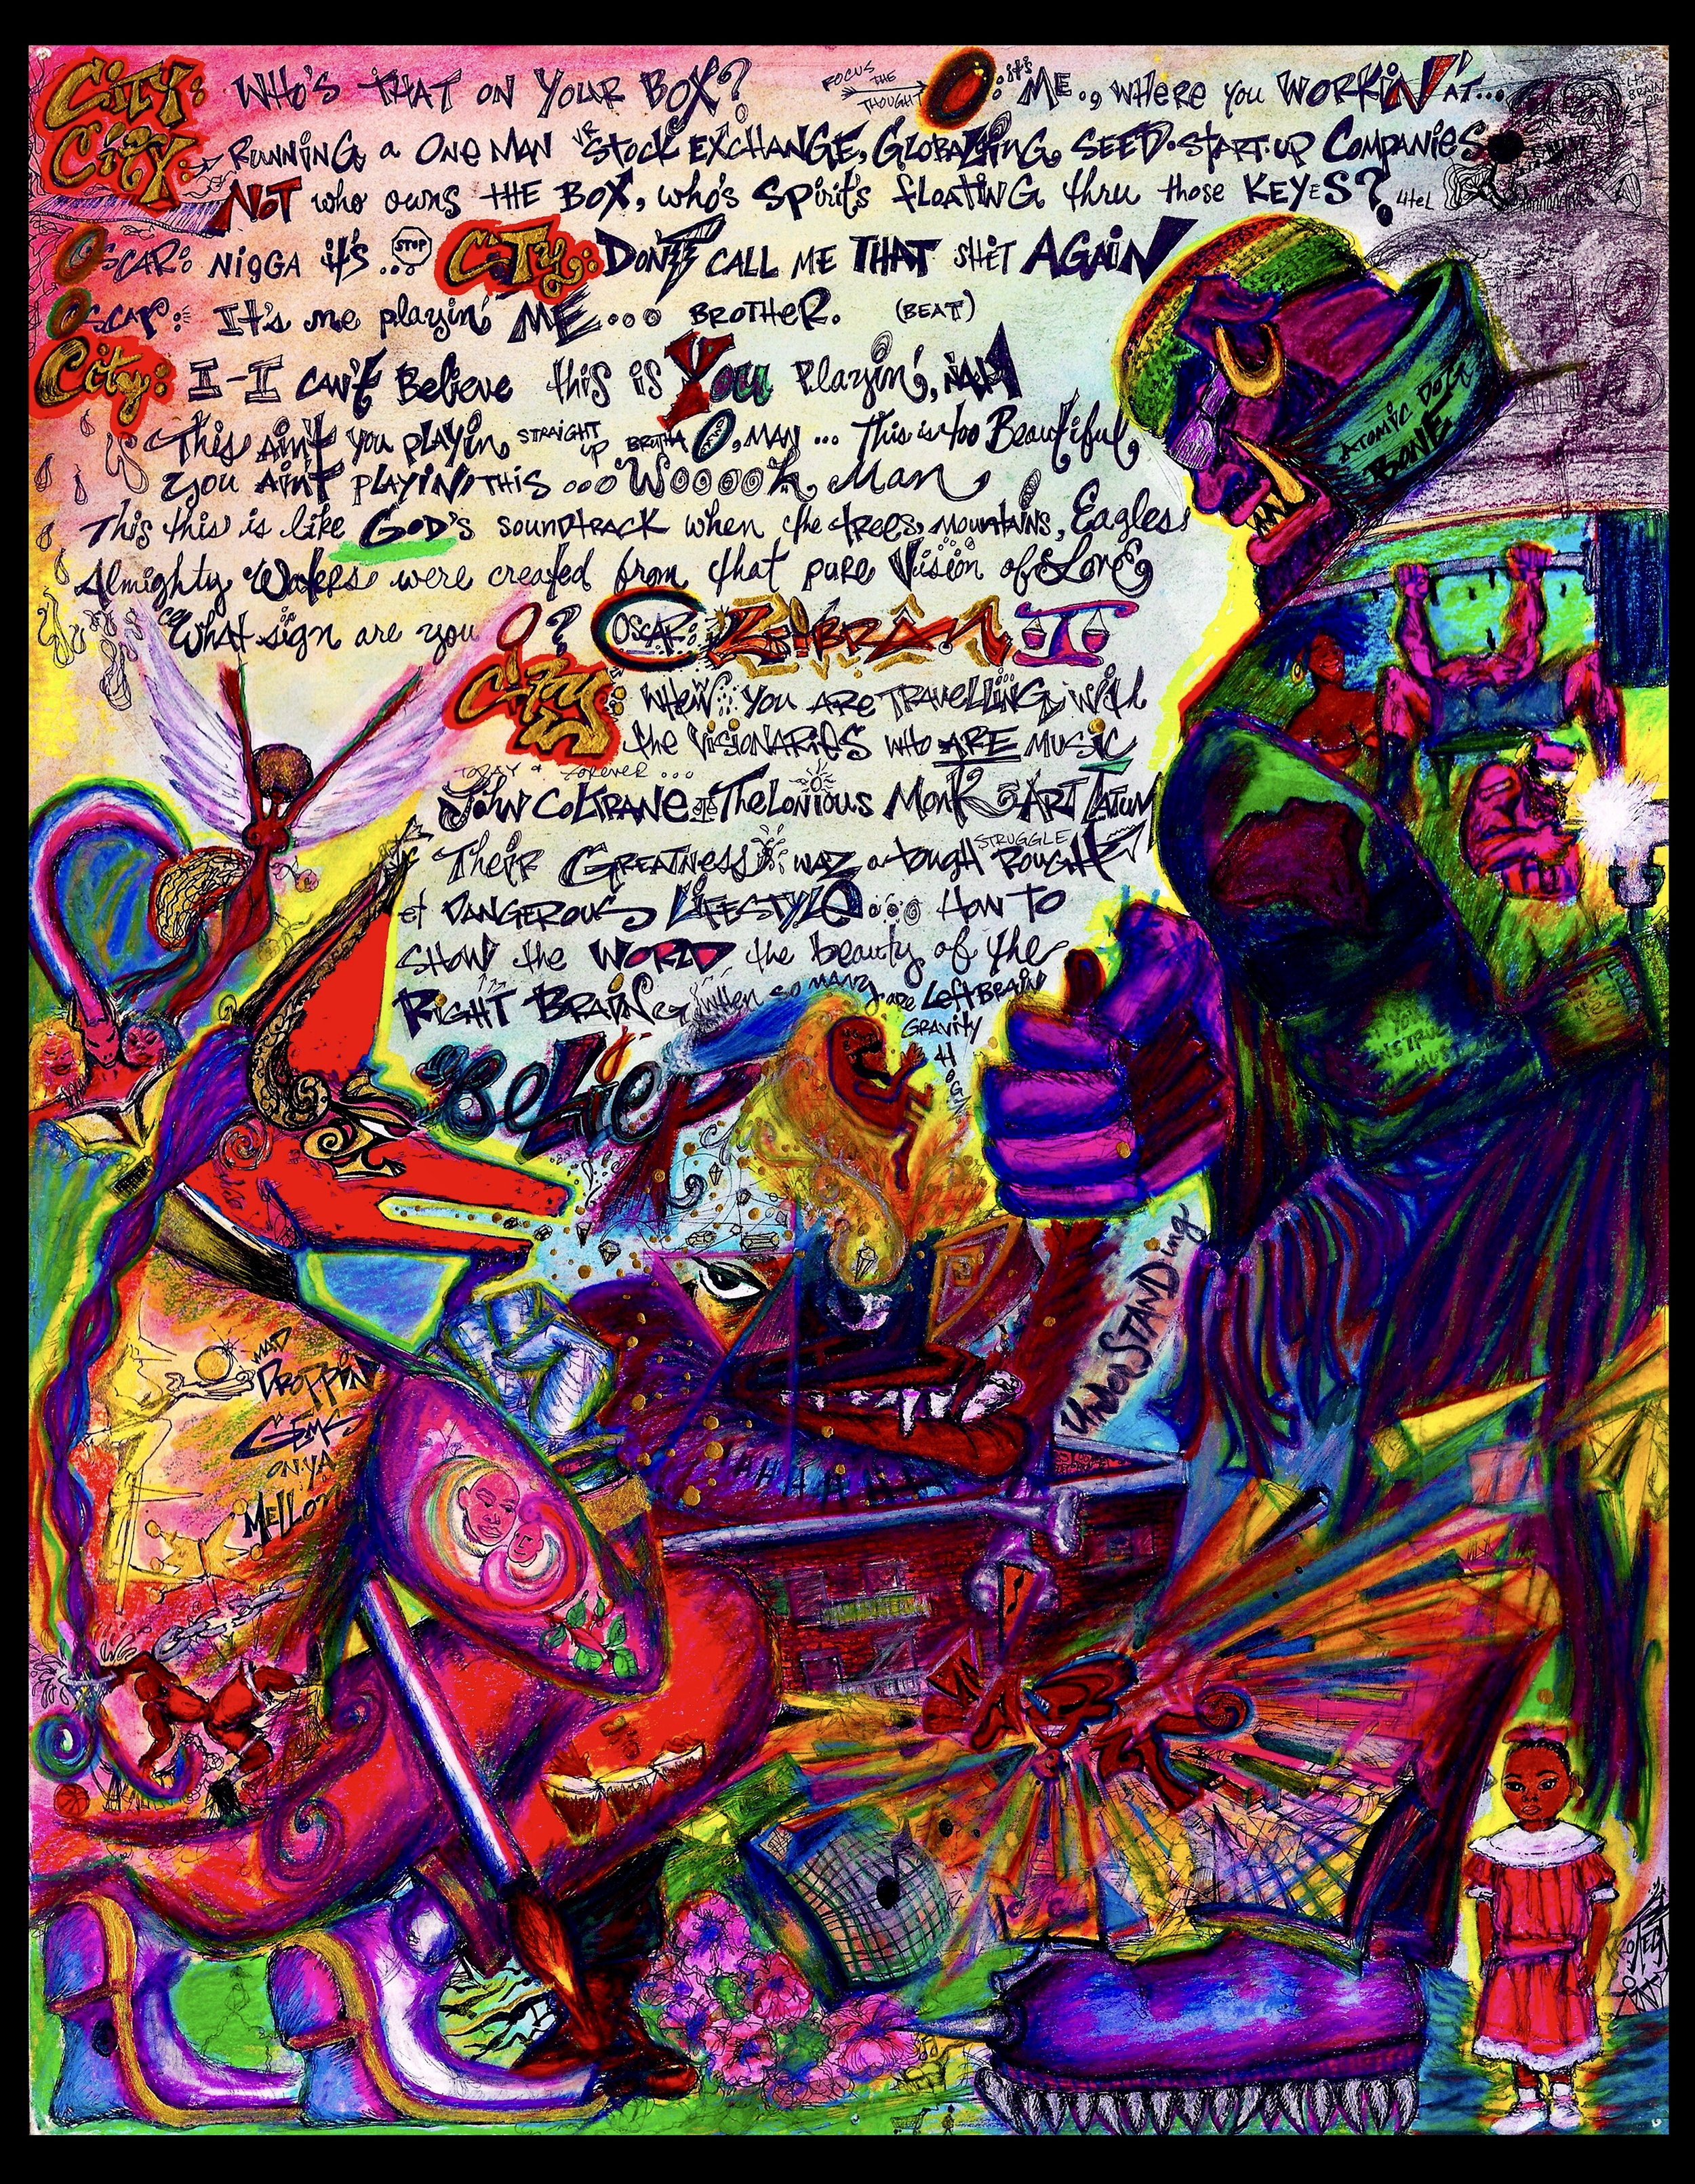 CITY: WHO'S THAT ON YOUR BOX?
FOCUS THE THOUGHT
O: it's ME., WHERE YOU WORKIN' AT...
CITY: RUNNING a ONE MAN VR STOCK EXCHANGE, GLOBALIZING SEED·START·UP COMPANIES
NOT who owns THE BOX, who's Spirit's flOATING thru those KEYES?
OSCAR: NIGGA it's... STOP CITY: DON'T CALL ME THAT SHIT AGAIN
OSCAR: It's me playin' ME... BROTHER. (BEAT)
City: I-I CAN'T Believe this is You Playin', NAH
This AiN't you plAyin, STRAIGHT UP BRUTHA O, MAN... This is too Beautiful,
you AiN'T plAYIN' THIS ...Woooah, Man
This this is like GOD's souNdtRACK when the trees, mountains, Eagles
Almighty Waters were created from that pure Vision of Love
What sign are you O? OSCAR:
City: WHEW: YOU ARE TRAVELLING with
the VISIONARIES who ARE MUSIC
TODAY & FOREVER...
JOHN COLTRANE THELONIOUS MONK & ART TATUM
Their GREATNESS waz a tough STRUGGLE ROUGH
et DANGEROUS LIFESTYLE... HOW TO
SHOW the WORLD the beauty of the
RIGHT BRAIN when so many are Left BRAIN
GRAVITY
BELIEF
ATOMIC DOG
BONE
UNDERSTANDing
MAD
DROPPIN
GEMS
ON YA
MELLON